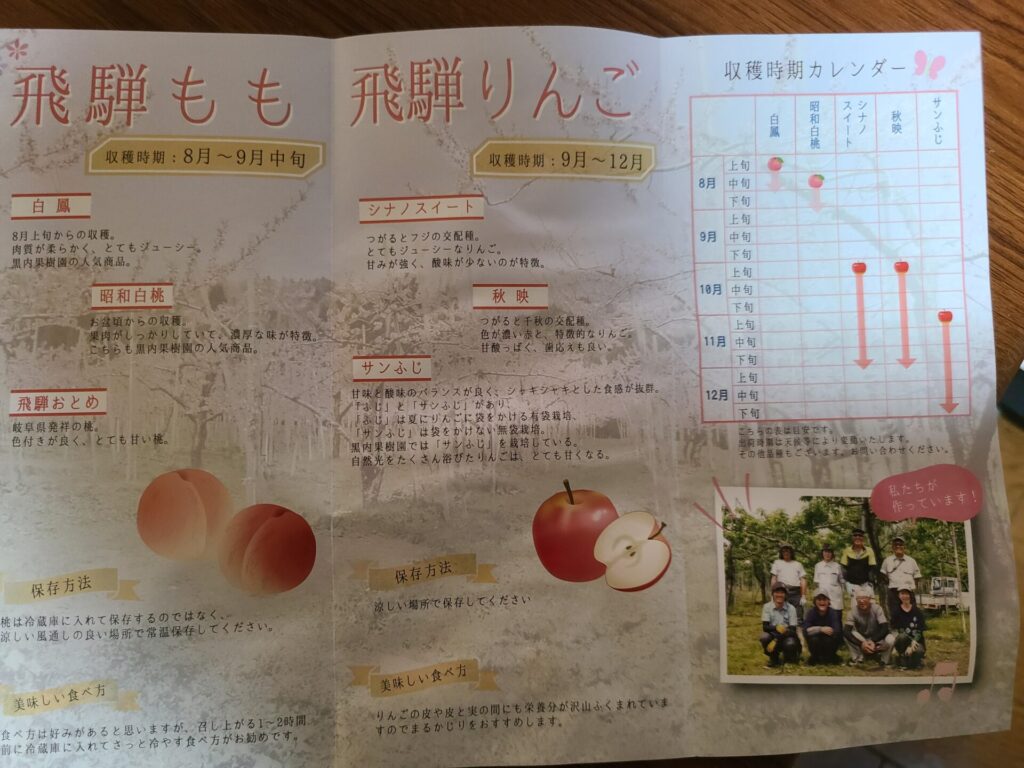 飛騨もも
収穫時期：8月～9月中旬
白鳳
8月上旬からの収穫。
肉質が柔らかく、とてもジューシー。
黒内果樹園の人気商品。
昭和白桃
お盆頃からの収穫。
果肉がしっかりしていて、濃厚な味が特徴。
こちらも黒内果樹園の人気商品。
飛騨おとめ
岐阜県発祥の桃。
色付きが良く、とても甘い桃。
保存方法
桃は冷蔵庫に入れて保存するのではなく、
涼しい風通しの良い場所で常温保存してください。
美味しい食べ方
食べ方は好みがあると思いますが、召し上がる1～2時間
前に冷蔵庫に入れてさっと冷やす食べ方がお勧めです。
飛騨りんご
収穫時期：9月～12月
シナノスイート
つがるとフジの交配種。
とてもジューシーなりんご。
甘みが強く、酸味が少ないのが特徴。
秋映
つがると千秋の交配種。
色が濃い赤と、特徴的なりんご。
甘酸っぱく、歯応えも良い。
サンふじ
甘味と酸味のバランスが良く、シャキシャキとした食感が抜群。
「ふじ」と「サンふじ」があり、
「ふじ」は夏にりんごに袋をかける有袋栽培、
「サンふじ」は袋をかけない無袋栽培。
黒内果樹園では「サンふじ」を栽培している。
自然光をたくさん浴びたりんごは、とても甘くなる。
保存方法
涼しい場所で保存してください
美味しい食べ方
りんごの皮や皮と実の間にも栄養分が沢山ふくまれていま
すのでまるかじりをおすすめします。
収穫時期カレンダー
白鳳
昭和白桃
シナノ
スイート
秋映
サンふじ
8月
上旬
中旬
下旬
9月
上旬
中旬
下旬
10月
上旬
中旬
下旬
11月
上旬
中旬
下旬
12月
上旬
中旬
下旬
こちらの表は目安です。
出荷時期は天候等により変動いたします。
その他品種もございます。お問い合わせください。
私たちが
作っています！